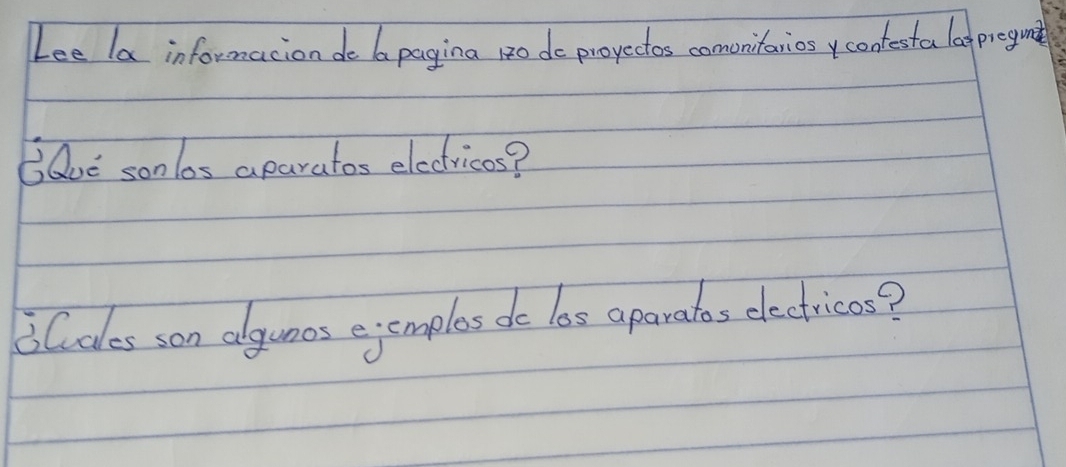 Lee la informacion de la pagina 120 de proyectos comonitarios y contesta las pregunt
¿Qué son los aparatos electricos?
¿Cuales son algunos ejemplos de los aparatos electricos?